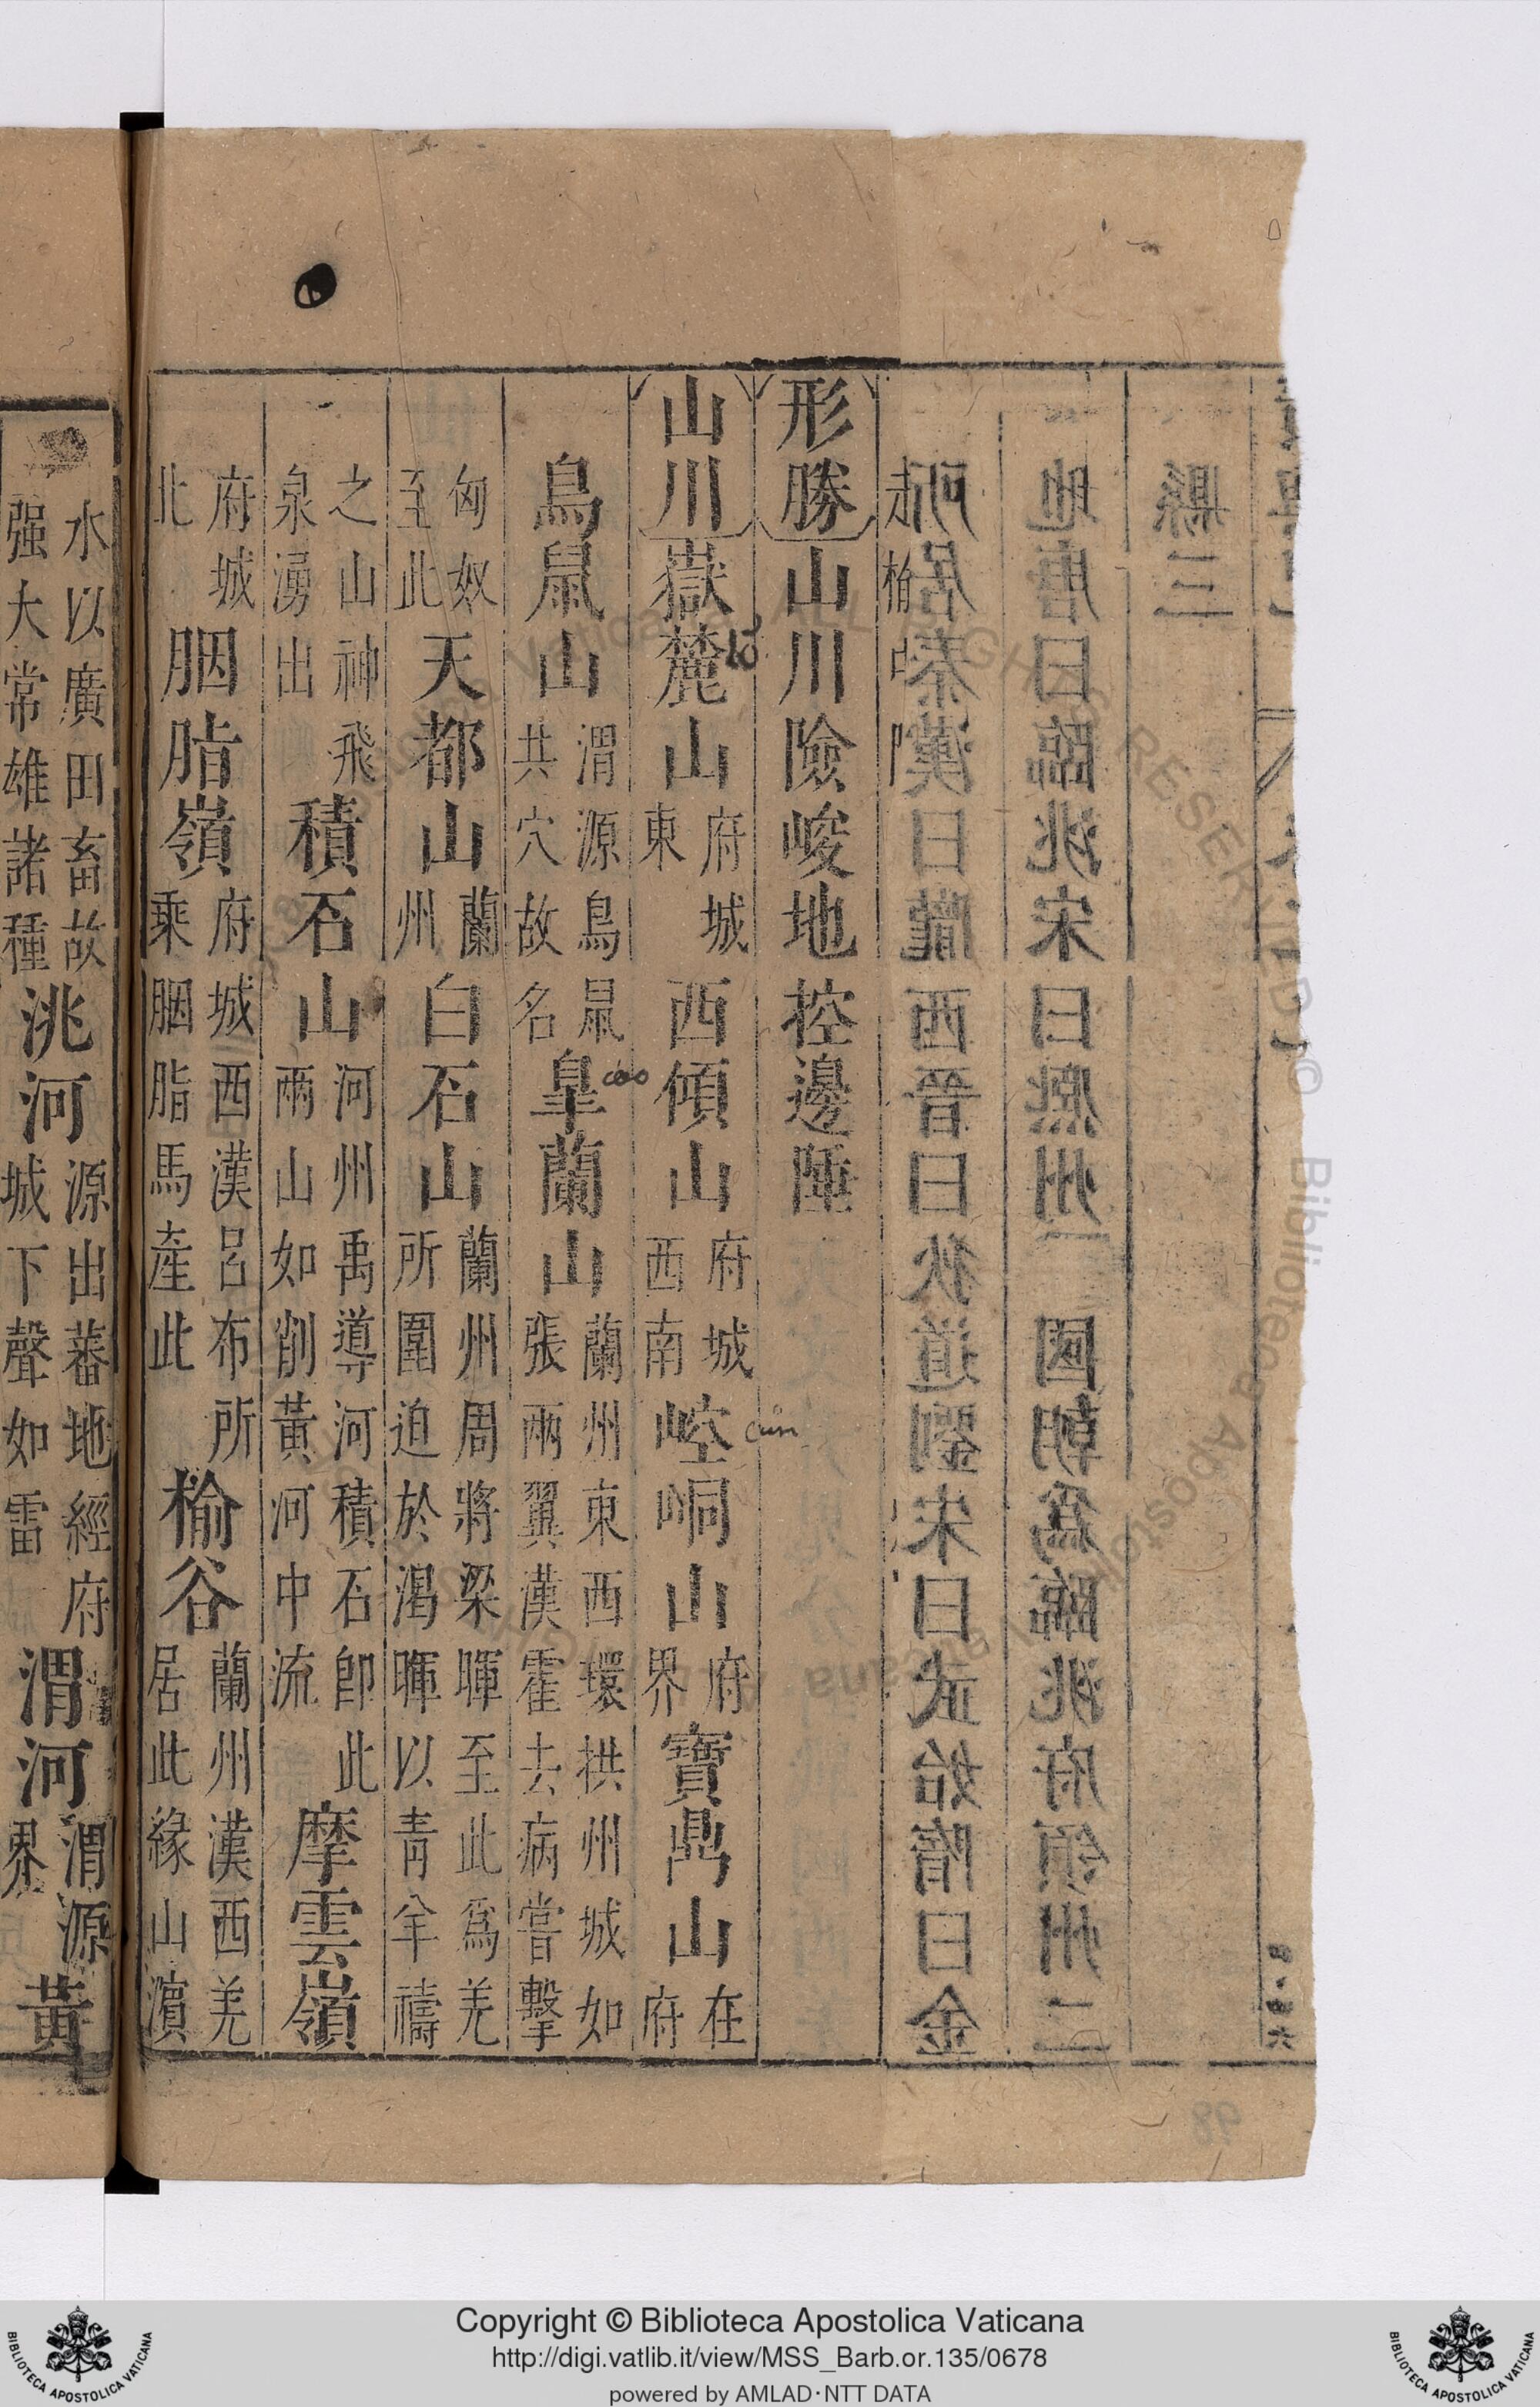 所居秦漢曰隴西晉曰狄道劉宋曰武始隋曰金
地唐曰臨洮宋曰熙州 國朝爲臨洮府領州二
縣三
形勝山川險峻地控邊陲
山川嶽麓山府城東西傾山府城西南崆峒山府界寶鼎山在府
鳥鼠山渭源鳥鼠共穴故名皐蘭山蘭州東西環拱州城如張兩翼漢霍去病嘗擊
匈奴至此天都山蘭州白石山蘭州周將梁暉至此爲羌所圍迫於渴暉以青羊禱
之山神飛泉湧出積石山河州禹導河積石卽此兩山如削黃河中流摩雲嶺
府城北胭脂嶺府城西漢呂布所乘胭脂馬產此榆谷蘭州漢西羌居此緣山濵
水以廣田畜故强大常雄諸種洮河源出蕃地經府城下聲如雷渭河渭源界黃
Copyright © Biblioteca Apostolica Vaticana
http://digi.vatlib.it/view/MSS_Barb.or.135/0678
powered by AMLAD·NTT DATA
BIBLIOTECA APOSTOLICA VATICANA
BIBLIOTECA APOSTOLICA VATICANA